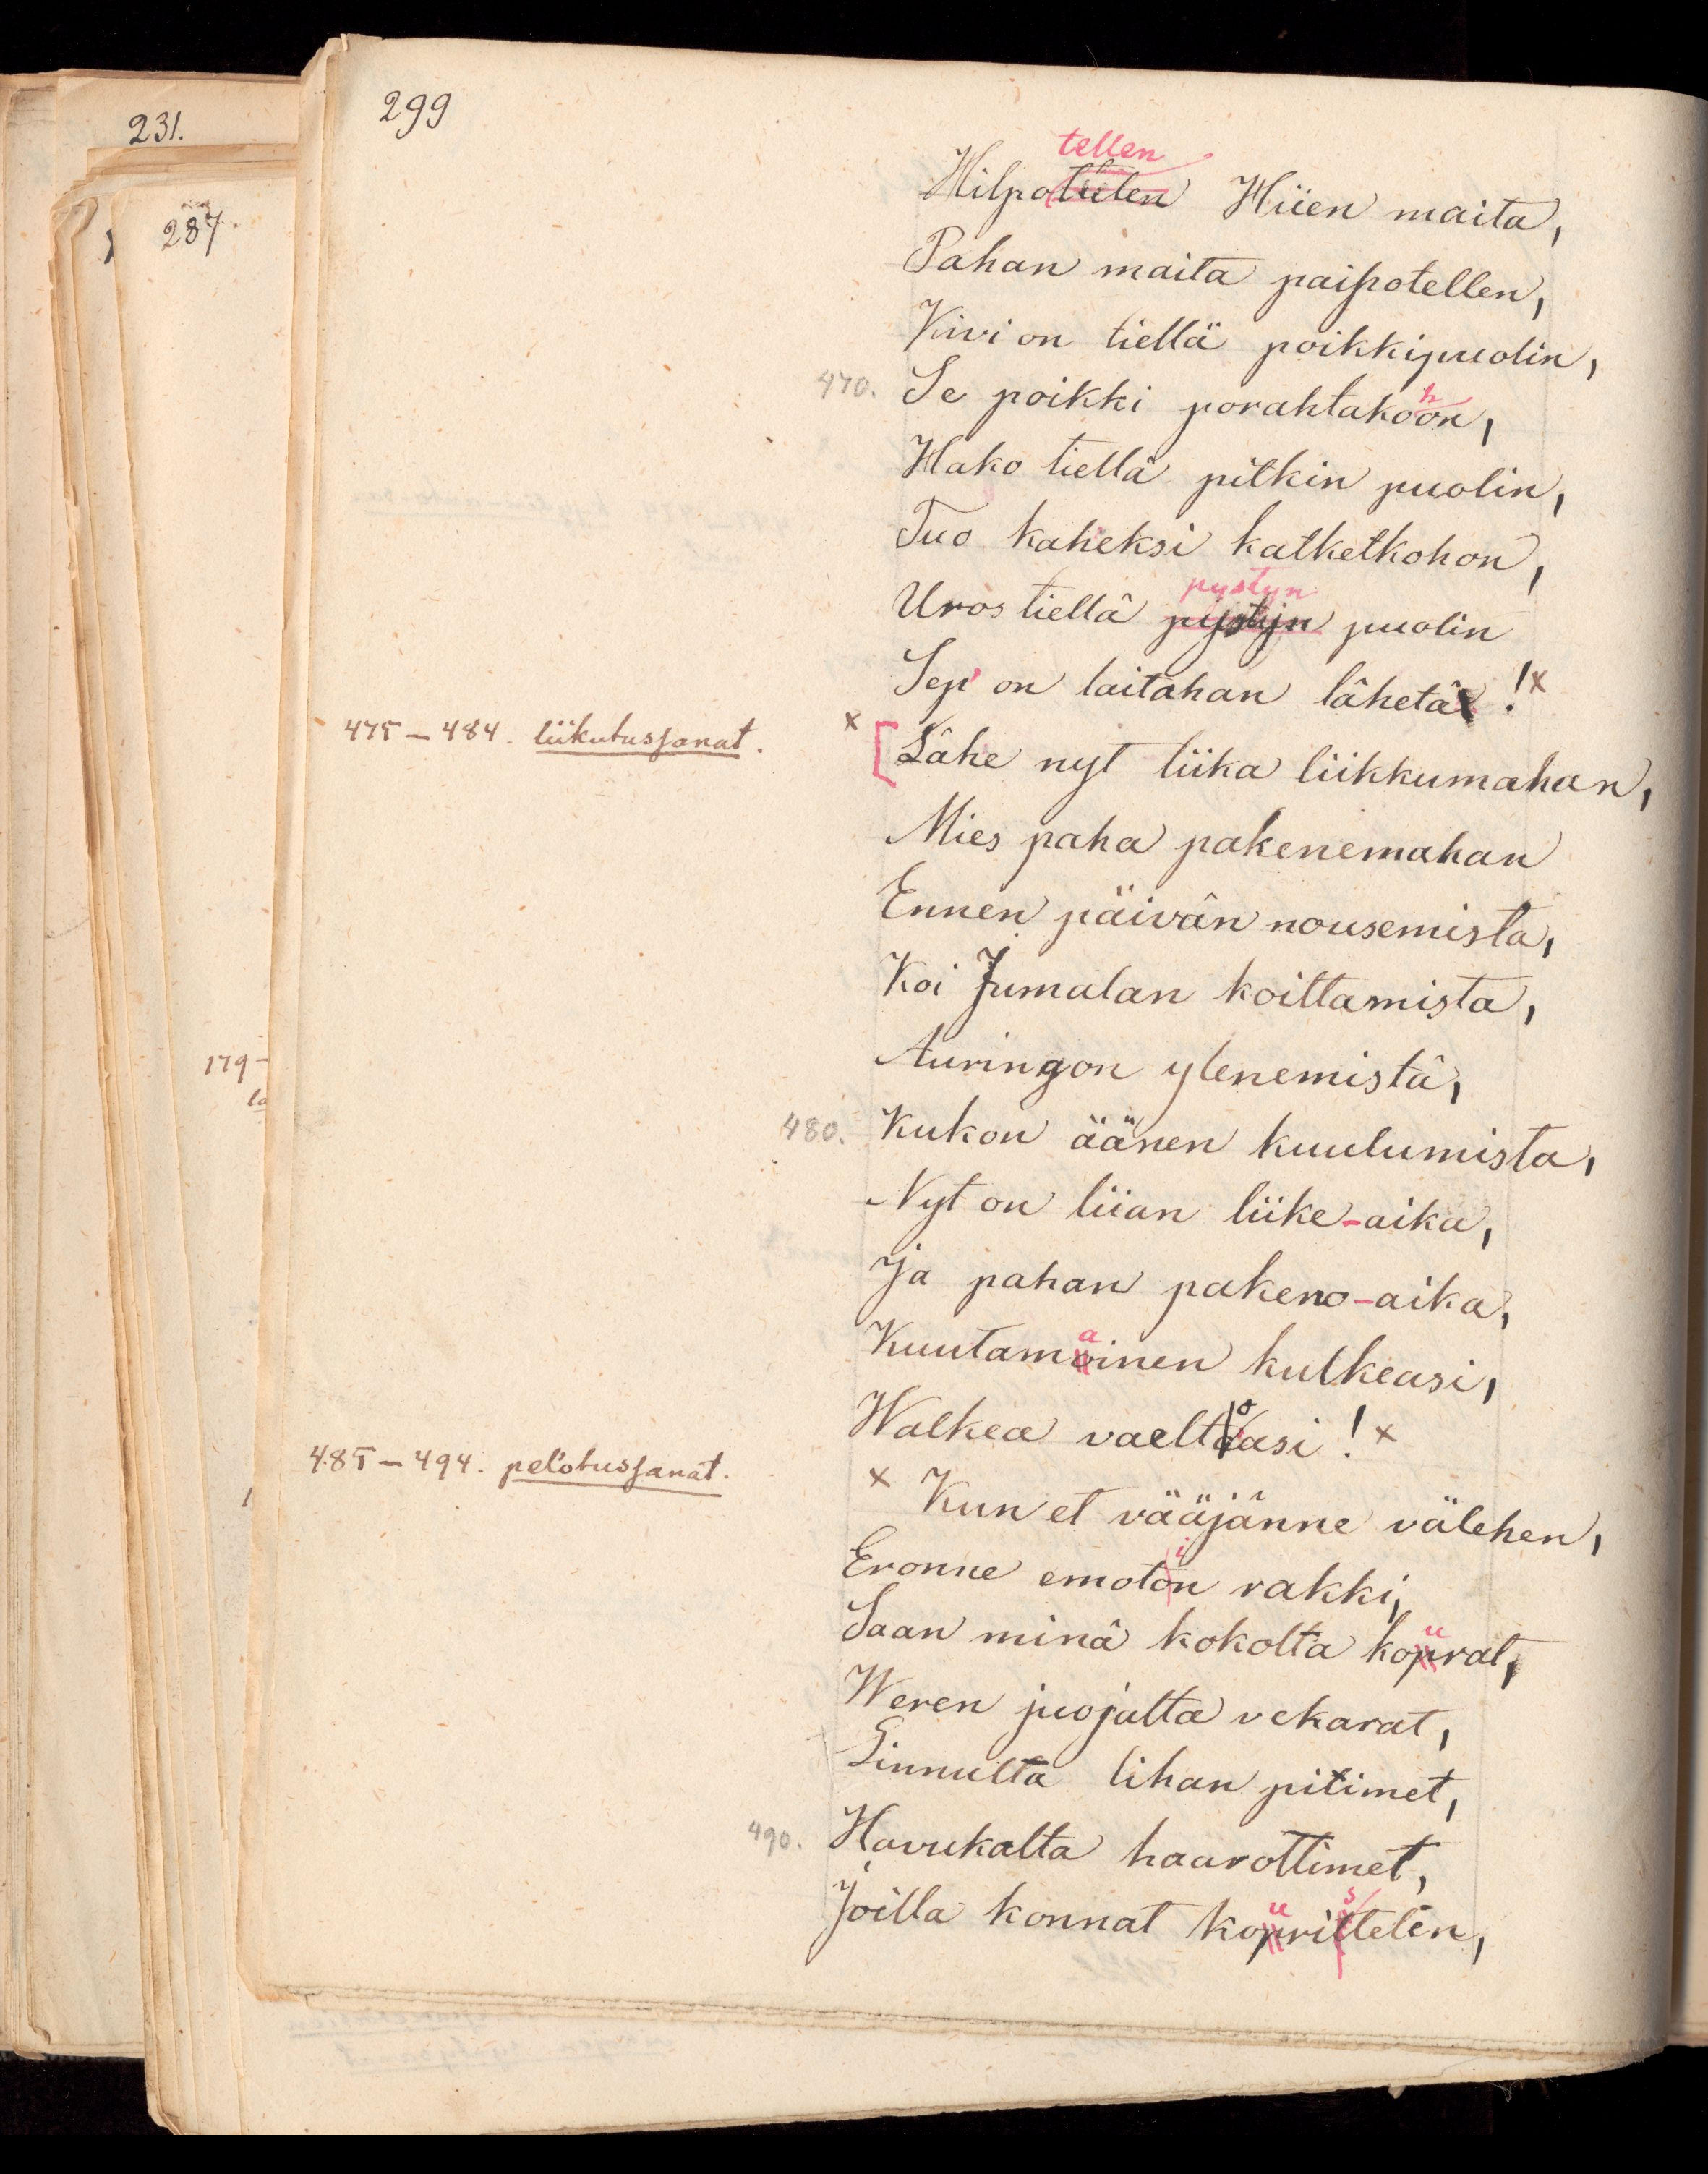 299
231.
287.
tellen
Hilpotulen Hiien maita,
Pahan maita paiʃsotellen,
Kivi on tiellä poikkipuolin,
470. Se poikki porahtakohon,
Hako tiellä pitkin puolin,
Tuo kaheksi katketkohon,
pystyn
Uros tiellä pystyn puolin
Sep' on laitahan lähetä !x
475–484. liikutussanat.
x [Lähe nyt liika liikkumahan,
Mies paha pakenemahan
Ennen päivän nousemista,
Koi Jumalan koittamista,
Auringon ylenemistä,
179–
480. Kukon äänen kuulumista,
Nyt on liian liike-aika,
Ja pahan pakeno-aika,
a
Kuutamoinen kulkeasi,
o
Walkea vaeltaasi ! x
485–494. pelotussanat.
x Kun et vääjänne välehen,
i
Eronne emoton rakki,
u
Saan minä kokolta koprat,
Weren juojalta vekarat,
Linnulta lihan pitimet,
490. Havukalta haarottimet,
u s
Joilla konnat koprittelen,